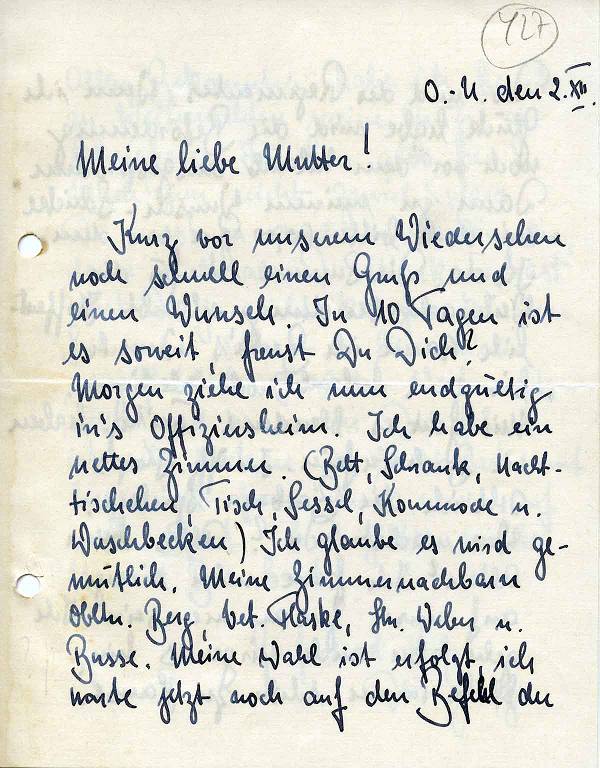 427
O.-U. den 2.XII.
Meine liebe Mutter!
Kurz vor unserem Wiedersehen
noch schnell einen Gruß und
einen Wunsch. In 10 Tagen ist
es soweit, freust Du Dich?
Morgen ziehe ich nun endgültig
in's Offiziersheim. Ich habe ein
nettes Zimmer. (Bett, Schrank, Nacht-
tischchen, Tisch, Sessel, Kommode u.
Waschbecken) Ich glaube es wird ge-
mütlich. Meine Zimmernachbarn
Obltn. Berg, Vet. Flaske, Ltn. Weber u.
Busse. Meine Wahl ist erfolgt, ich
warte jetzt noch auf den Befehl der